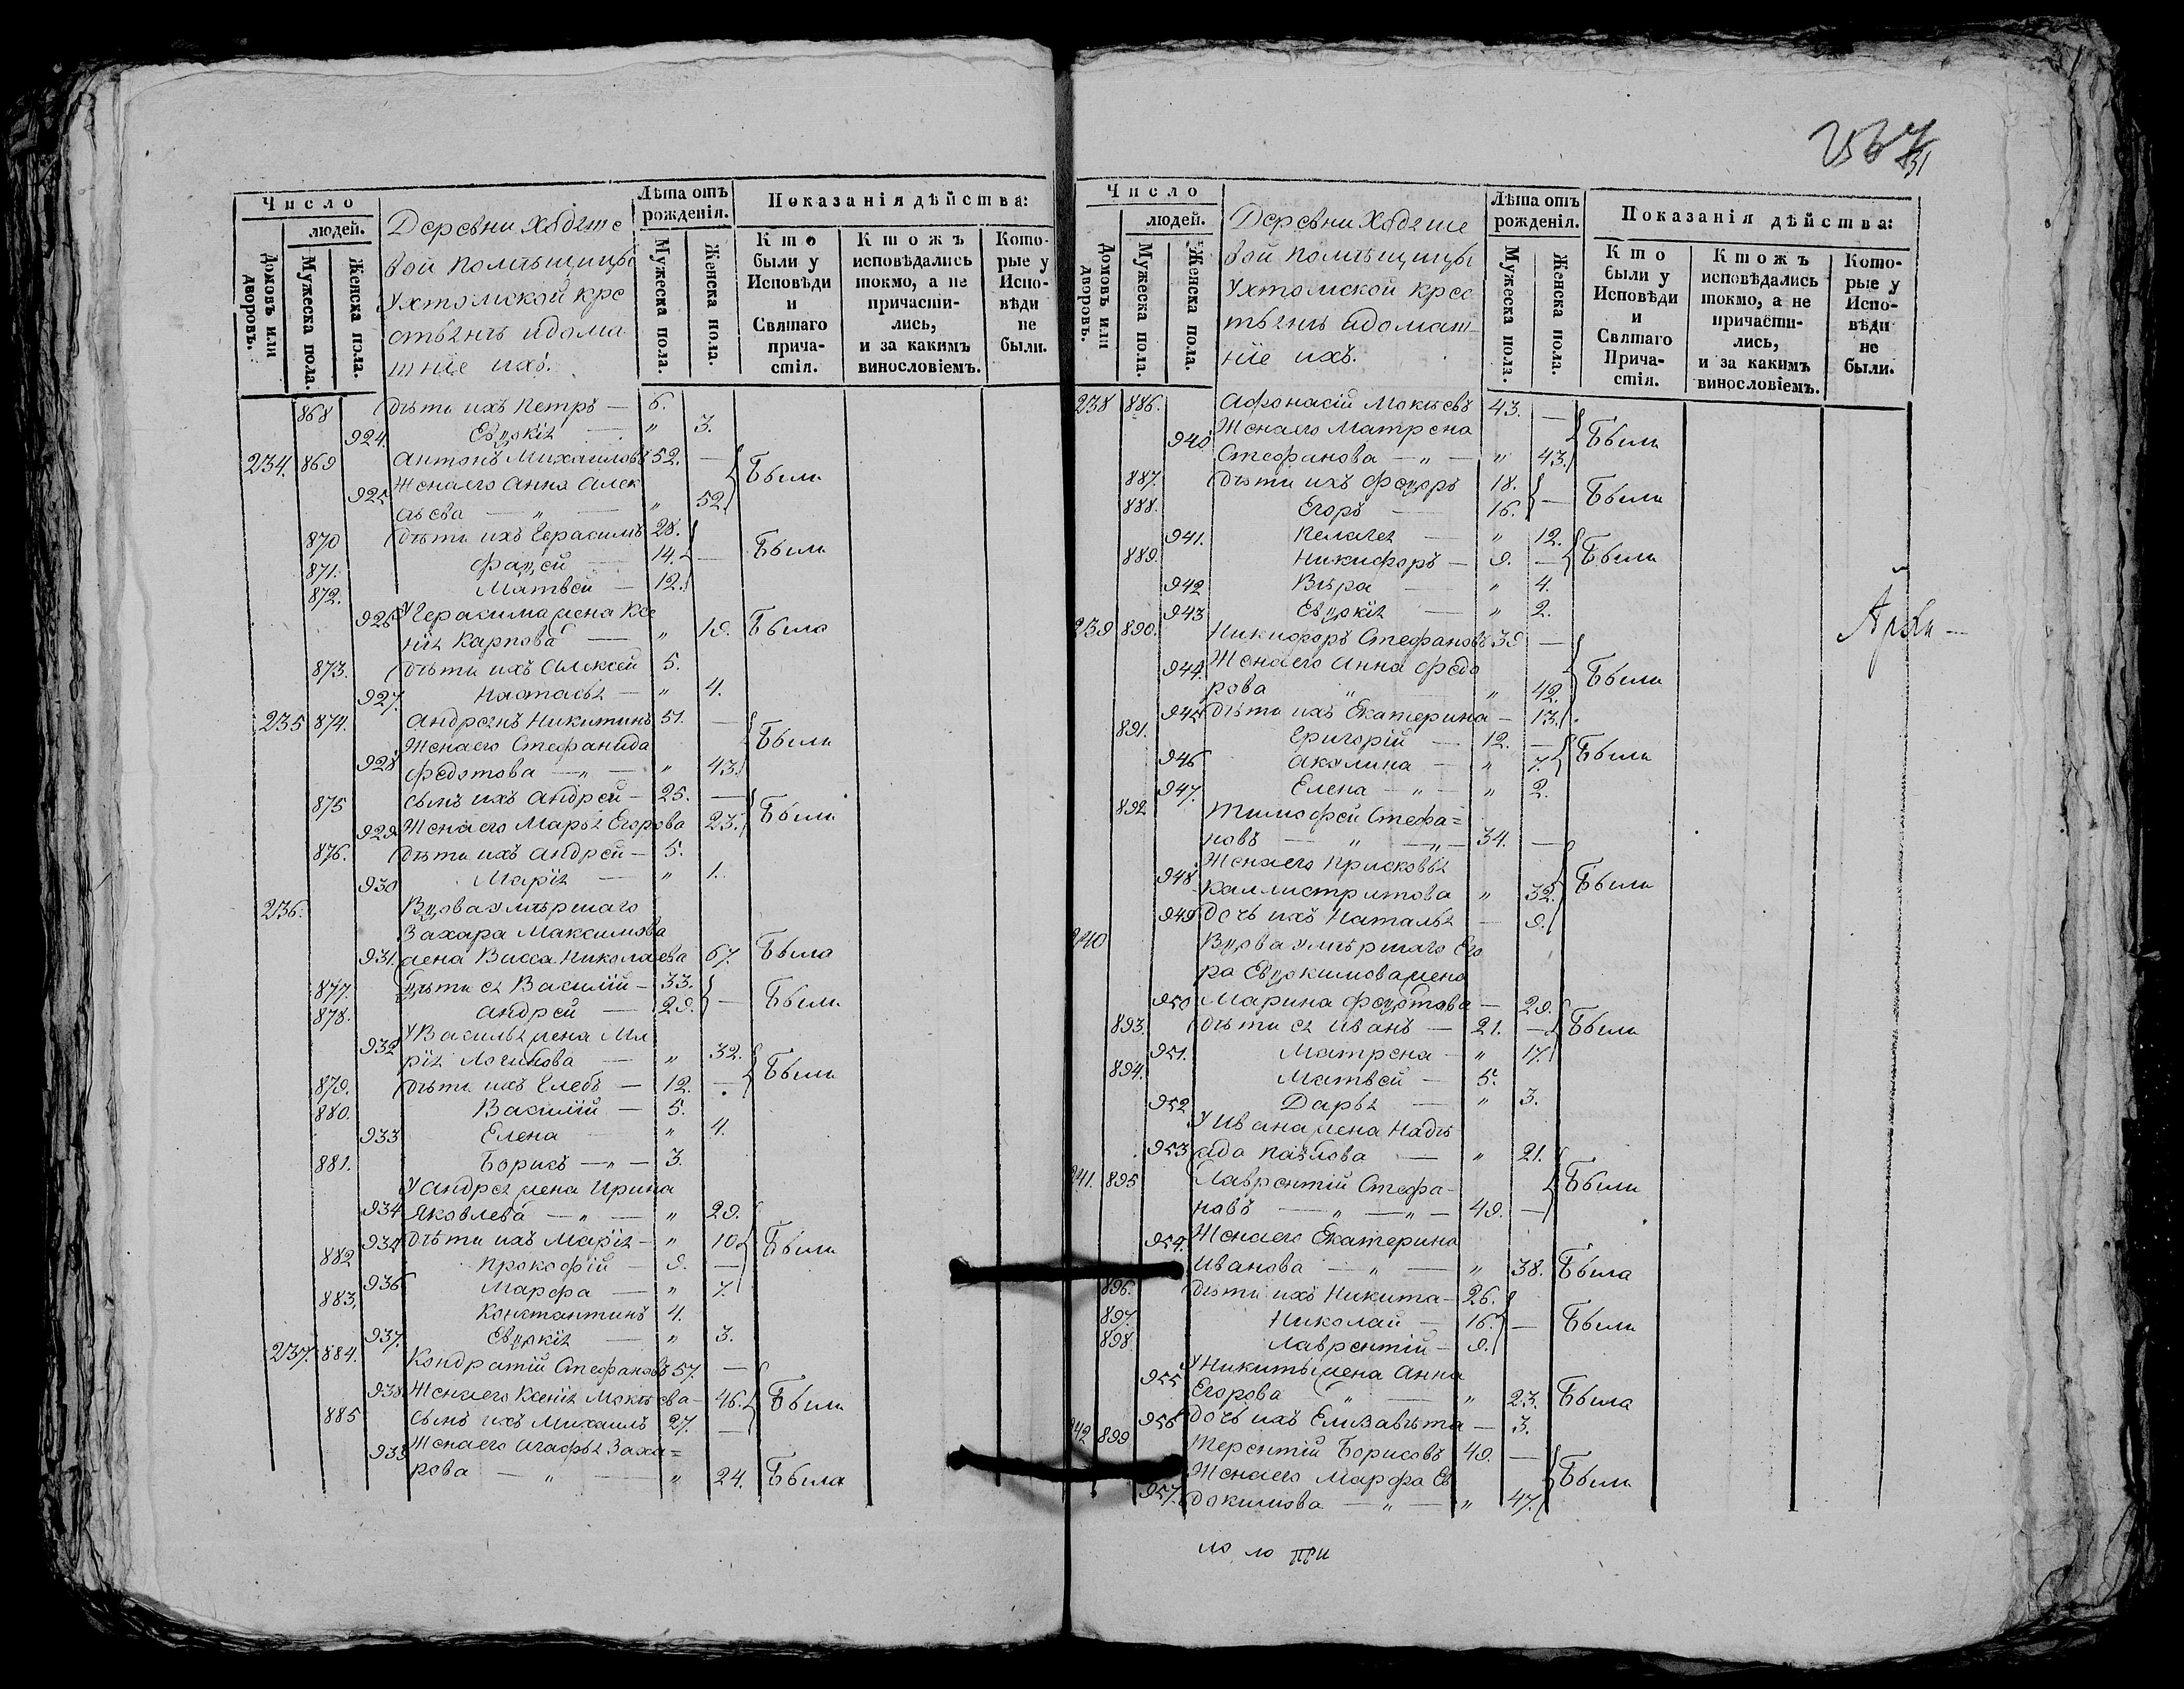 Число
людей.
Домовъ или дворовъ.
Мужеска пола.
Женска пола.
Деревни Ходяше
вой помѣщицы
Ухтомской кре
стьянъ и дома
шніе ихъ.
Лѣта отъ рожденія.
Мужеска пола.
Женска пола.
Показанія дѣйства:
Кто были у Исповѣди и Святаго причастія.
Кто жъ исповѣдались токмо, а не причастились, и за какимъ винословіемъ.
Которые у Исповѣди не были.
868 дѣти ихъ Петръ — 6.
924. Евдокія — " 3.
234. 869 Антонъ Михаиловъ 52. — Были
925 Жена его Анна Алек
аѣева — " — " 52
870 дѣти ихъ Герасимъ 28.
871. Фадѣй — 14. — Были
872. Матвей — 12.
926 У Герасима жена Ксе
нія Карпова — " 19. Была
873. дѣти ихъ Алексей 5.
927. Настасья — " 4.
235 874. Андреянъ Никитинъ 51. — Были
Жена его Стефанида
928 Федотова — " — " 43.
875 сынъ ихъ Андрей — 25. — Были
929. Жена его Марья Егорова 23.
876. дѣти ихъ Андрей — 5.
930 Марія — " 1.
236. Вдова умѣршаго
Захара Максимова
931. жена Васса Николаева 67. Была
877. Дѣти ея Василій — 33.
878. Андрей — 29. — Были
932 У Василья жена Ма
рія Логинова — " 32. Были
879. дѣти ихъ Глебъ — 12. —
880. Василій — 5.
933 Елена — " 4.
881. Борисъ — " — 3.
У Андрея жена Ирина
934 Яковлева — " — " 29.
934 дѣти ихъ Марія — " 10 Были
882 Прокофій — 9. —
936 Марфа — " 7.
883. Константинъ 4.
937. Евдокія — " 3.
237. 884. Кондратій Стефановъ 57. —
938. Жена его Ксенія Мокѣева — 46. Были
885 сынъ ихъ Михаилъ 27. —
939 Жена его Агафья Заха=
рова — " — " 24. Была
31
Число
людей.
Домовъ или дворовъ.
Мужеска пола.
Женска пола.
Деревни Ходяше
вой помѣщицы
Ухтомской крес
тьянъ и домаш-
ніе ихъ.
Лѣта отъ рожденія.
Мужеска пола.
Женска пола.
Показанія дѣйства:
Кто были у Исповѣди и Святаго Причастія.
Кто жъ исповѣдались токмо, а не причастились, и за какимъ винословіемъ.
Которые у Исповѣди не были.
238 886. Афонасій Мокѣевъ 43. — Были
Жена его Матрена
940 Стефанова — " — " 43.
887. дѣти ихъ Федоръ 18.
888. Егоръ — 16. — Были
941. Пелагея — " 12.
889. Никифоръ — 9. — Были
942 Вѣра — " 4.
943 Евдокія — " 2.
239 890. Никифоръ Стефановъ 39 —
944. Жена его Анна Федо
рова " " 42. Были
945 дѣти ихъ Екатерина — 13.
891. Григорій — 12. —
946 Акулина — " 7. Были
947. Елена — " — " 2.
892 Тимофей Стефа=
новъ — " — " — 34. —
948 Жена его Прасковья
Каллистратова " 32. Были
949 дочь ихъ Наталья — 9.
240 Вдова умѣршаго Его
ра Евдокимова жена
950 Марина Федотова — 29.
893. дѣти ея Иванъ — 21. — Были
951. Матрена — " 17.
894. Матвей — 5.
952 Дарья — " 3.
У Ивана жена Надѣ
953 жда Павлова — " 21.
241. 895 Лаврентій Стефа- Были
новъ — " — " — 49. —
954. Жена его Екатерина
Иванова — " — " 38. Была
896. дѣти ихъ Никита — 26.
897. Николай — 16. — Были
898. Лаврентій — 9.
955 У Никиты жена Анна
Егорова " — " 23. Была
956 дочь ихъ Елизавѣта — 3.
242 899 Терентій Борисовъ 49. — Были
Жена его Марфа Ев
957. докимова — " — " 47.